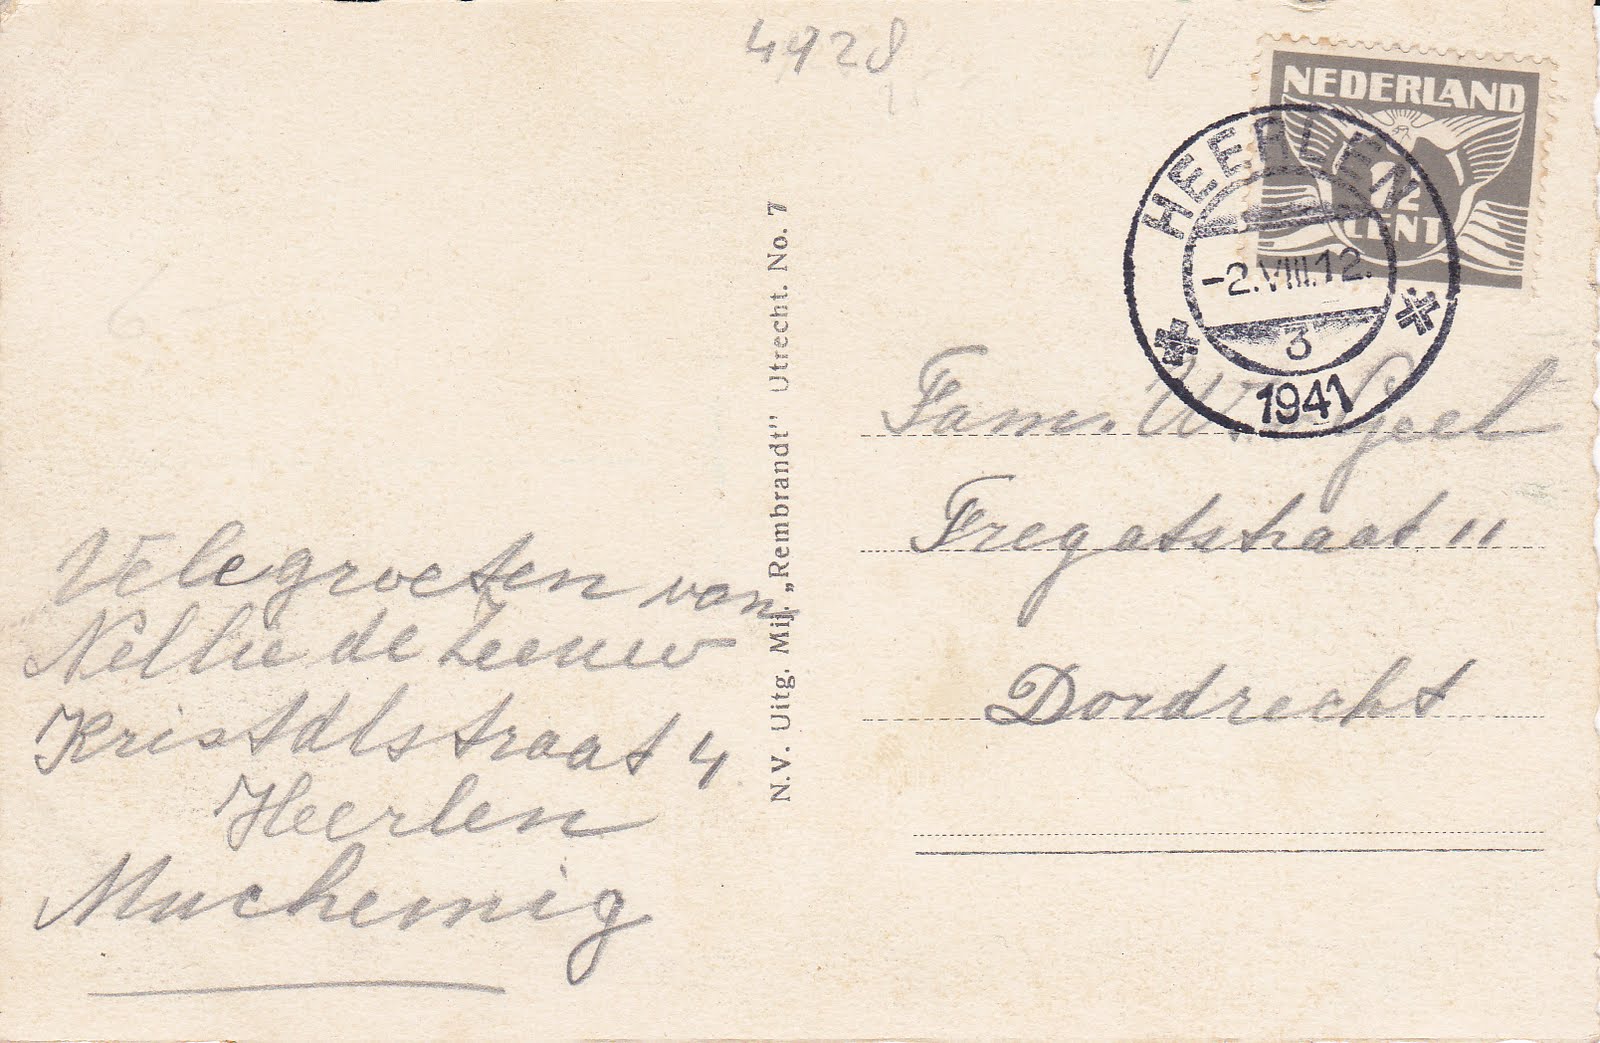 4928
NEDERLAND
1½
CENT
HEERLEN
-2.VIII.12.
3
1941
Vele groeten van
Nellie de Zeeuw
Kristdlstraat 4
Heerlen
Muchemig
N.V. Uitg. Mij. „Rembrandt" Utrecht. No. 7
Fam. W. Geel
Fregatstraat 11
Dordrecht